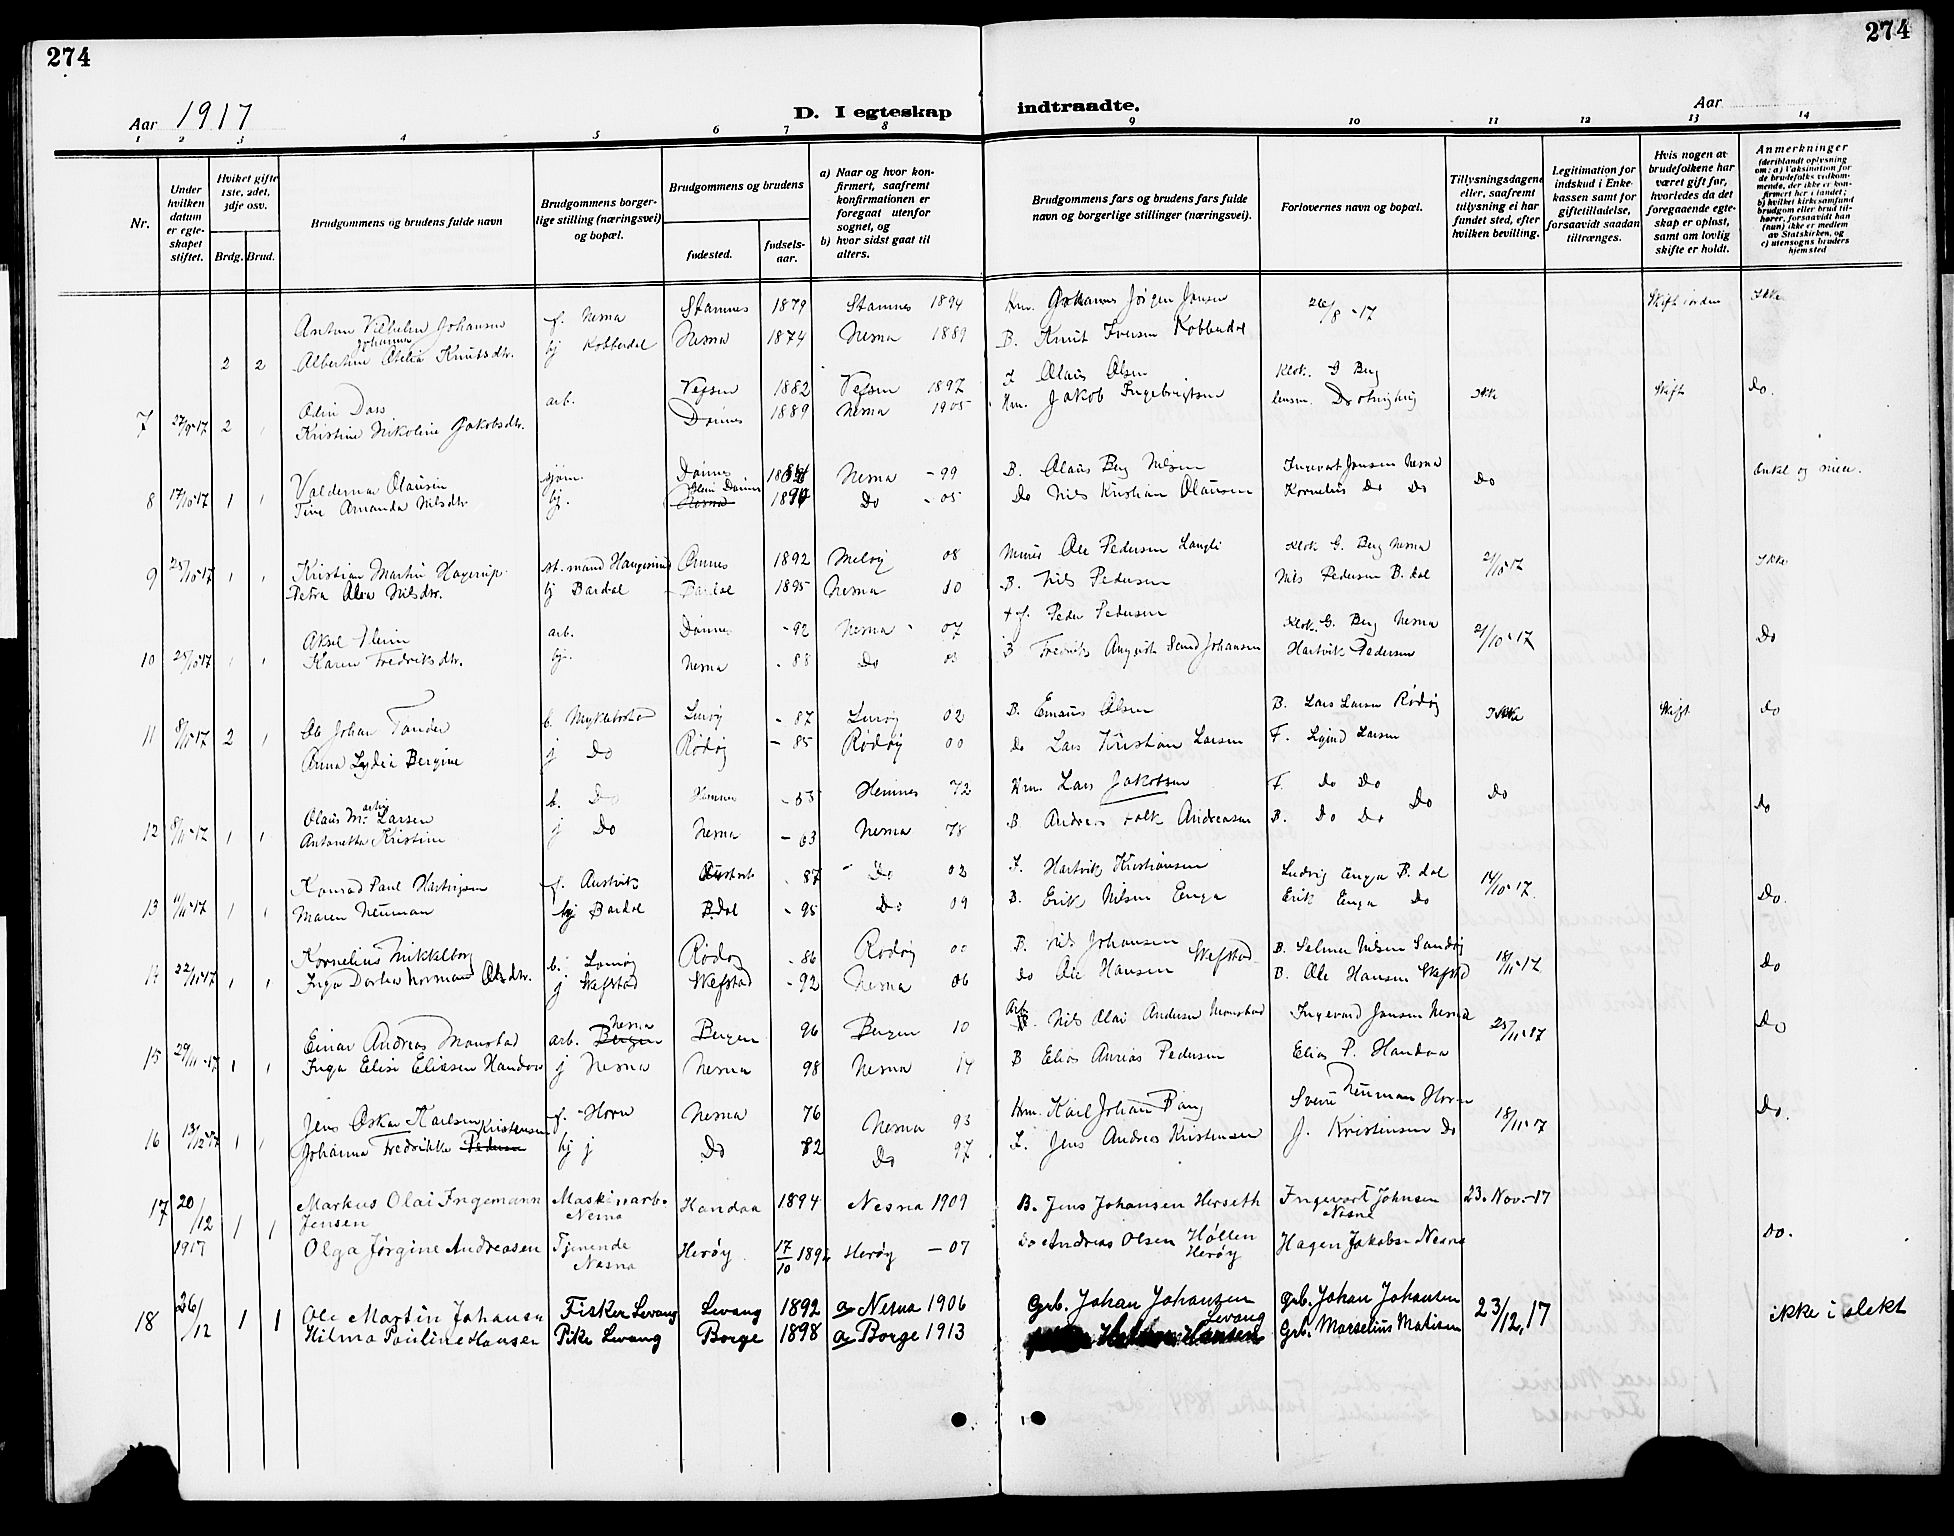 274
274
Aar 1917
D. I egteskap indtraadte.
Aar
1 2 3 4 5 6 7 8 9 10 11 12 13 14
Nr.
Under hvilken datum er egteskapet stiftet.
Hvilket gifte 1ste, 2det, 3dje osv.
Brdg. Brud.
Brudgommens og brudens fulde navn
Brudgommens borgerlige stilling (næringsvei) og bopæl.
Brudgommens og brudens
fødested.
fødselsaar.
a) Naar og hvor konfirmert, saafremt konfirmationen er foregaat utenfor sognet, og
b) hvor sidst gaat til alters.
Brudgommens fars og brudens fars fulde navn og borgerlige stillinger (næringsvei).
Forlovernes navn og bopæl.
Tillysningsdagene eller, saafremt tillysning ei har fundet sted, efter hvilken bevilling.
Legitimation for indskud i Enkekassen samt for giftetilladelse, forsaavidt saadan tiltrænges.
Hvis nogen av brudefolkene har været gift før, hvorledes da det foregaaende egteskap er opløst, samt om lovlig skifte er holdt.
Anmerkninger (deriblandt oplysning om: a) Vaksination for de brudefolks vedkommende, der ikke er konfirmert her i landet; b) hvilket kirkesamfund brudgom eller brud tilhører, forsaavidt han (hun) ikke er medlem av Statskirken, og c) utensogns bruders hjemsted
Anton Vilhelm Johansen f. Nesna Stamnes 1879 Stamnes 1894 Hm. Johannes Jørgen Jensen 26/8-17 Ikke
2 2 Albertine Johanna Knutsdtr. hj Kobberdal Nesna 1874 Nesna 1889 B. Knut Iversen Kobberdal
Odin Dass arb. Vefsen 1882 Vefsen 1897 F Olaus Olsen Klok. G Berg
7 27/9-17 2 Kristine Nikoline Jakobsdtr. Dønnes 1889 Nesna 1905 Hm. Jakob Ingebrigtsen Ikke Skift Do.
Valdemar Olausen Dønnes Nesna -99 B. Olaus Berg Nilsen Ingevart Jensen Nesna Onkel og niece.
8 17/10-17 1 1 Tine Amanda Nilsdtr hj. Do -05 Do Nils Kristian Olausen Kornelius Do Do Do
9 25/10-17 1 1 Kristian Martin Hagerup st.mand Haugesund 1892 Meløy 08 Ole Pedersen Langli Klok G. Berg Nesna 21/10-17 Ikke
Petra Nilsdtr. hj Bardal Bardal 1895 Nesna 10 B. Nils Pedersen Nils Pedersen B.dal
Aksel arb. Dønnes -92 Nesna 07 + f. Peder Pedersen Klok. G. Berg Nesna 21/10-17 Do
10 25/10-17 1 1 Karen Fredriksdtr. hj. Nesna -88 Do 03 B Fredrik August Johansen Hartvik Pedersen
11 8/11-17 2 1 Ole Johan Tander b. Myklebostad Lurøy -87 Lurøy 02 B. Olsen B. Lars Larsen Rødøy Ikke Skift Do
Anna Lydia Bergine j Do Rødøy -85 Rødøy 00 Do Lars Kristian Larsen F. Larsen
12 8/11-17 1 1 Olaus Martin Larsen b. Do Hemnes Hemnes 72 Hm. Lars Jakobsen F. Do Do Do Do
Antonetta Kristine j Do Nesna -63 Nesna 78 B. Andreas Andreassen B. Do Do Do
Konrad Paul Hartvigsen f. Austvik -87 Do 02 F Hartvik Kristiansen Ludvig Enga B.dal 14/10-17
13 11/11-17 1 1 Maren Neuman hj Bardal B.dal -95 Do 09 B. Erik Nilsen Enga Erik Enga Do Do.
Kornelius Mikkelborg b. Rødøy -86 Rødøy 00 B. Nils Johansen B. Selmer Nilsen Sandøy 18/11-17 Do
14 22/11-17 1 1 Inga Dortea Normann Olsdtr. j Skefstad Skefstad -92 Nesna 06 Do Ole Hansen Skefstad B. Ole Hansen Skefstad
Einar Andreas Monstad arb. Bergen Nesna Bergen 96 Bergen 10 Arb. Nils Olai Andersen Monstad Ingevard Jensen Nesna 25/11-17 Do
15 29/11-17 1 1 Inga Elise Eliasen Handaa j Nesna Nesna 98 Nesna 14 B Elias Pedersen Elias P. Handaa
Jens Oskar Karlsen f. Horn Nesna 76 Nesna 93 Hm. Karl Johan Bang Svein Neuman Horn 18/11-17 Do.
16 13/12-17 1 1 Johanna Fredrikke Pedersen Kristensen hj j Do 82 Do 97 F. Jens Andreas Kristensen J. Kristensen Do
17 20/12 1917 1 1 Markus Olai Ingemann Jensen Maskinarb. Nesna Handaa 1894 Nesna 1909 B. Jens Johansen Herseth Ingevart Johnsen Nesna 23. Nov.-17
Olga Jørgine Andreasen Tjenende Nesna Herøy 17/10 Herøy -07 Do Andreas Olsen Høllen Herøy Hagen Jakobsen Nesna Do.
18 26/12 1 1 Ole Martin Johansen Fisker Levang Levang 1892 a Nesna 1906 Grb. Johan Johansen Levang Grb. Johan Johansen 23/12,17 ikke i slekt
Hilma Pauline Hansen Pike Levang Borge 1898 a Borge 1913 Hansen Grb. Marselius Matisen